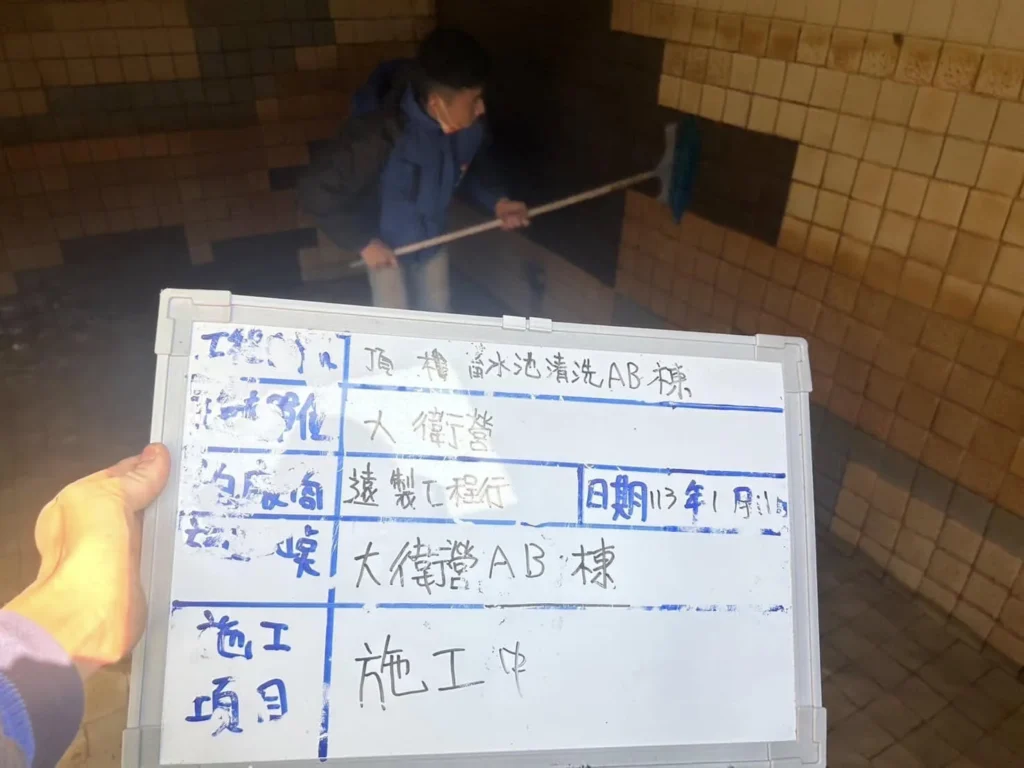 頂樓蓄水池清洗AB棟
大衛營
遠製工程行 日期 113年1月
大衛營AB棟
施工項目 施工中